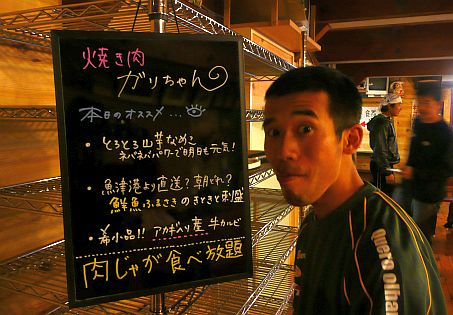 焼き肉
ガリちゃん
本日のオススメ...
・とろとろ山芋なめこ
ネバネバパワーで明日も元気!
・魚津港より直送?朝どれ?
鮮魚ふまさきのきときと刺盛
・希小品!!アカギ入り産牛カルビ
肉じゃが食べ放題